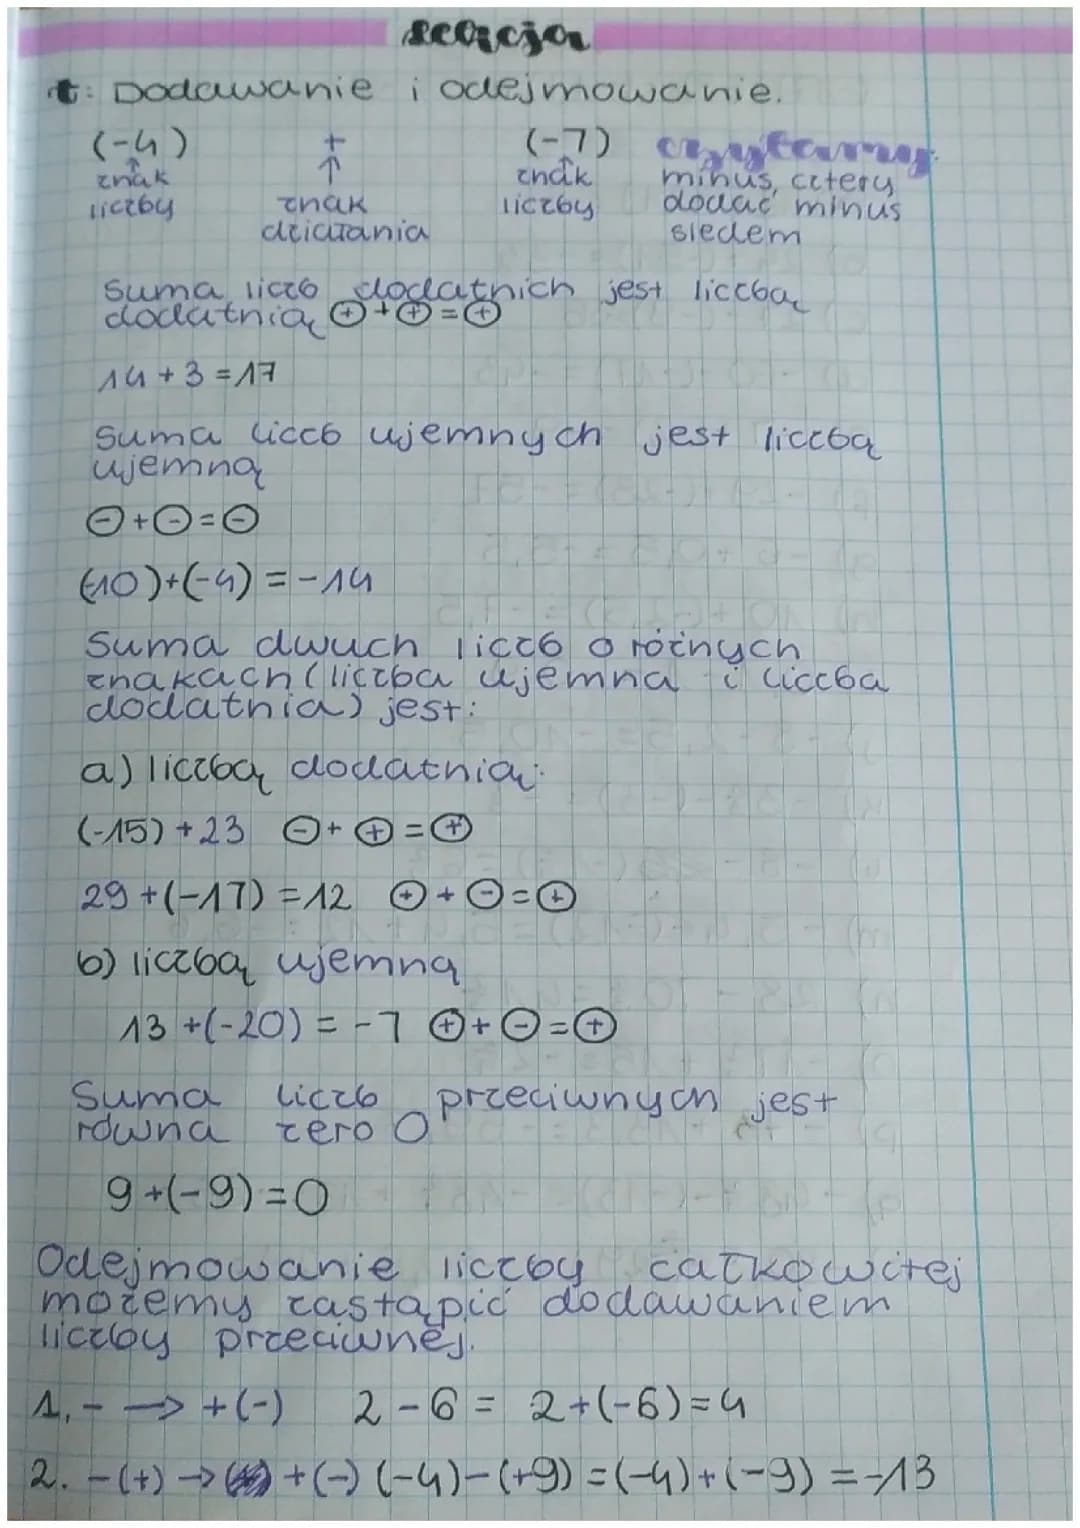 t: Dodawanie i odejmowanie.
(-4) + (-7) czytamy:
znak znak minus, cztery
liczby znak liczby dodać minus
działania siedem
Suma liczb dodatnich jest liczbą
dodatnią ⊕+⊕=⊕
14+3=17
Suma liczb ujemnych jest liczbą
ujemną
⊖+⊖=⊖
(-10)+(-4)=-14
Suma dwuch liczb o różnych
znakach (liczba ujemna i liczba
dodatnia) jest:
a) liczbą dodatnią:
(-15)+23 ⊖+⊕=⊕
29+(-17)=12 ⊕+⊖=⊕
b) liczbą ujemną
13+(-20)=-7 ⊕+⊖=⊕
Suma liczb przeciwnych jest
równa zero 0
9+(-9)=0
Odejmowanie liczby całkowitej
możemy zastąpić dodawaniem
liczby przeciwnej.
1. - → +(-) 2-6= 2+(-6)=4
2. -(+) → +(-) (-4)-(+9)=(-4)+(-9)=-13